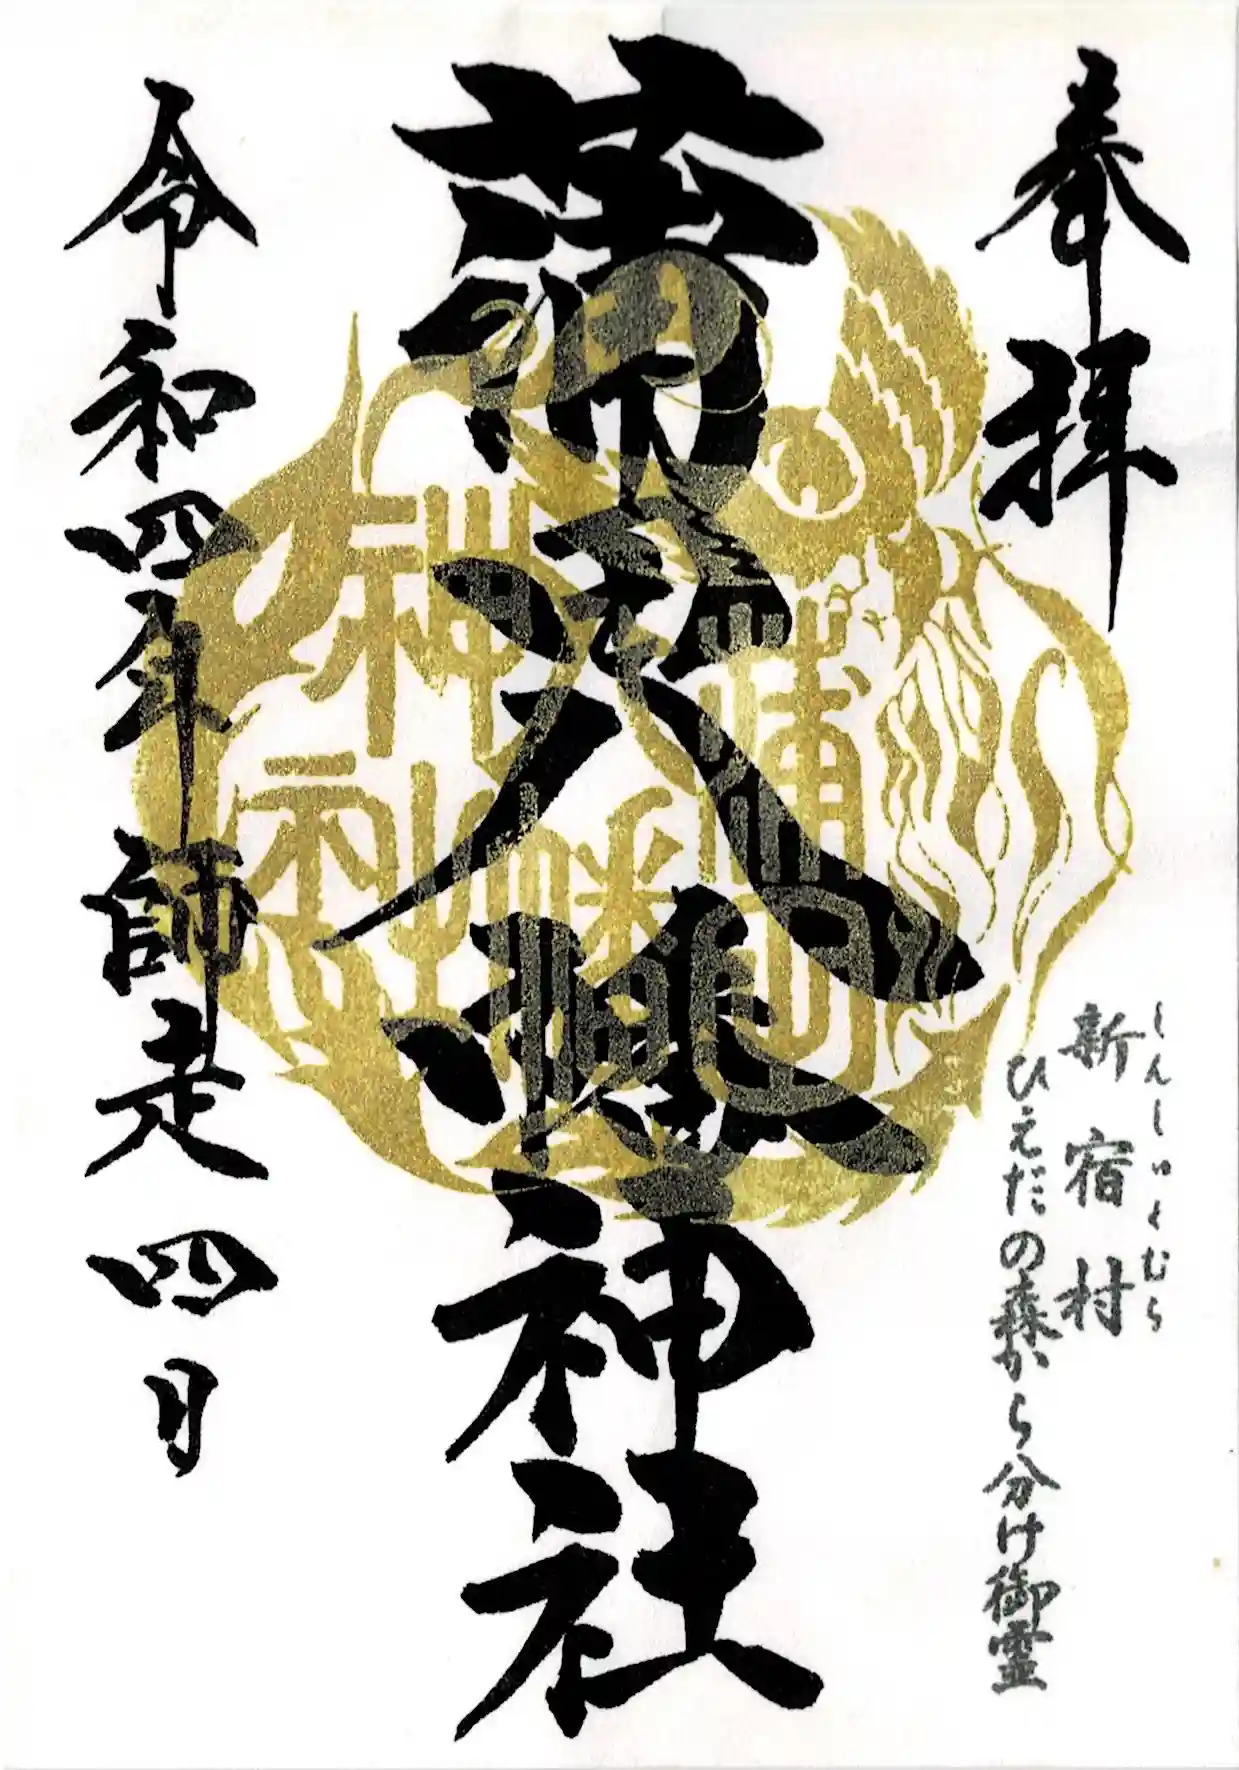 奉拝
しんしゅくむら
新宿村
ひえだの森から分け御霊
蒲田八幡神社
蒲田
八幡
神社
令和四年 師走 四日